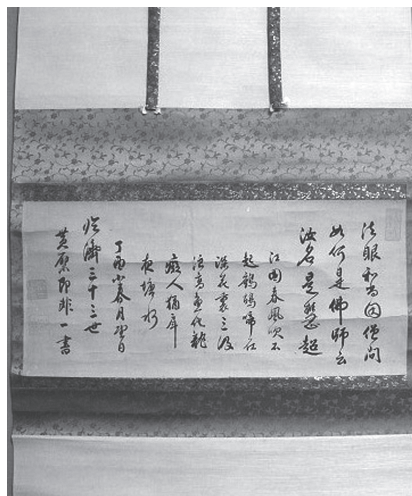 法眼和尚因僧問
如何是佛師云
汝名是慧超
江國春風吹不
起鷓鴣啼在
深花裏三級
浪高魚化龍
癡人猶戽
夜塘水
丁酉小春月望日
臨濟三十三世
黃檗即非一書